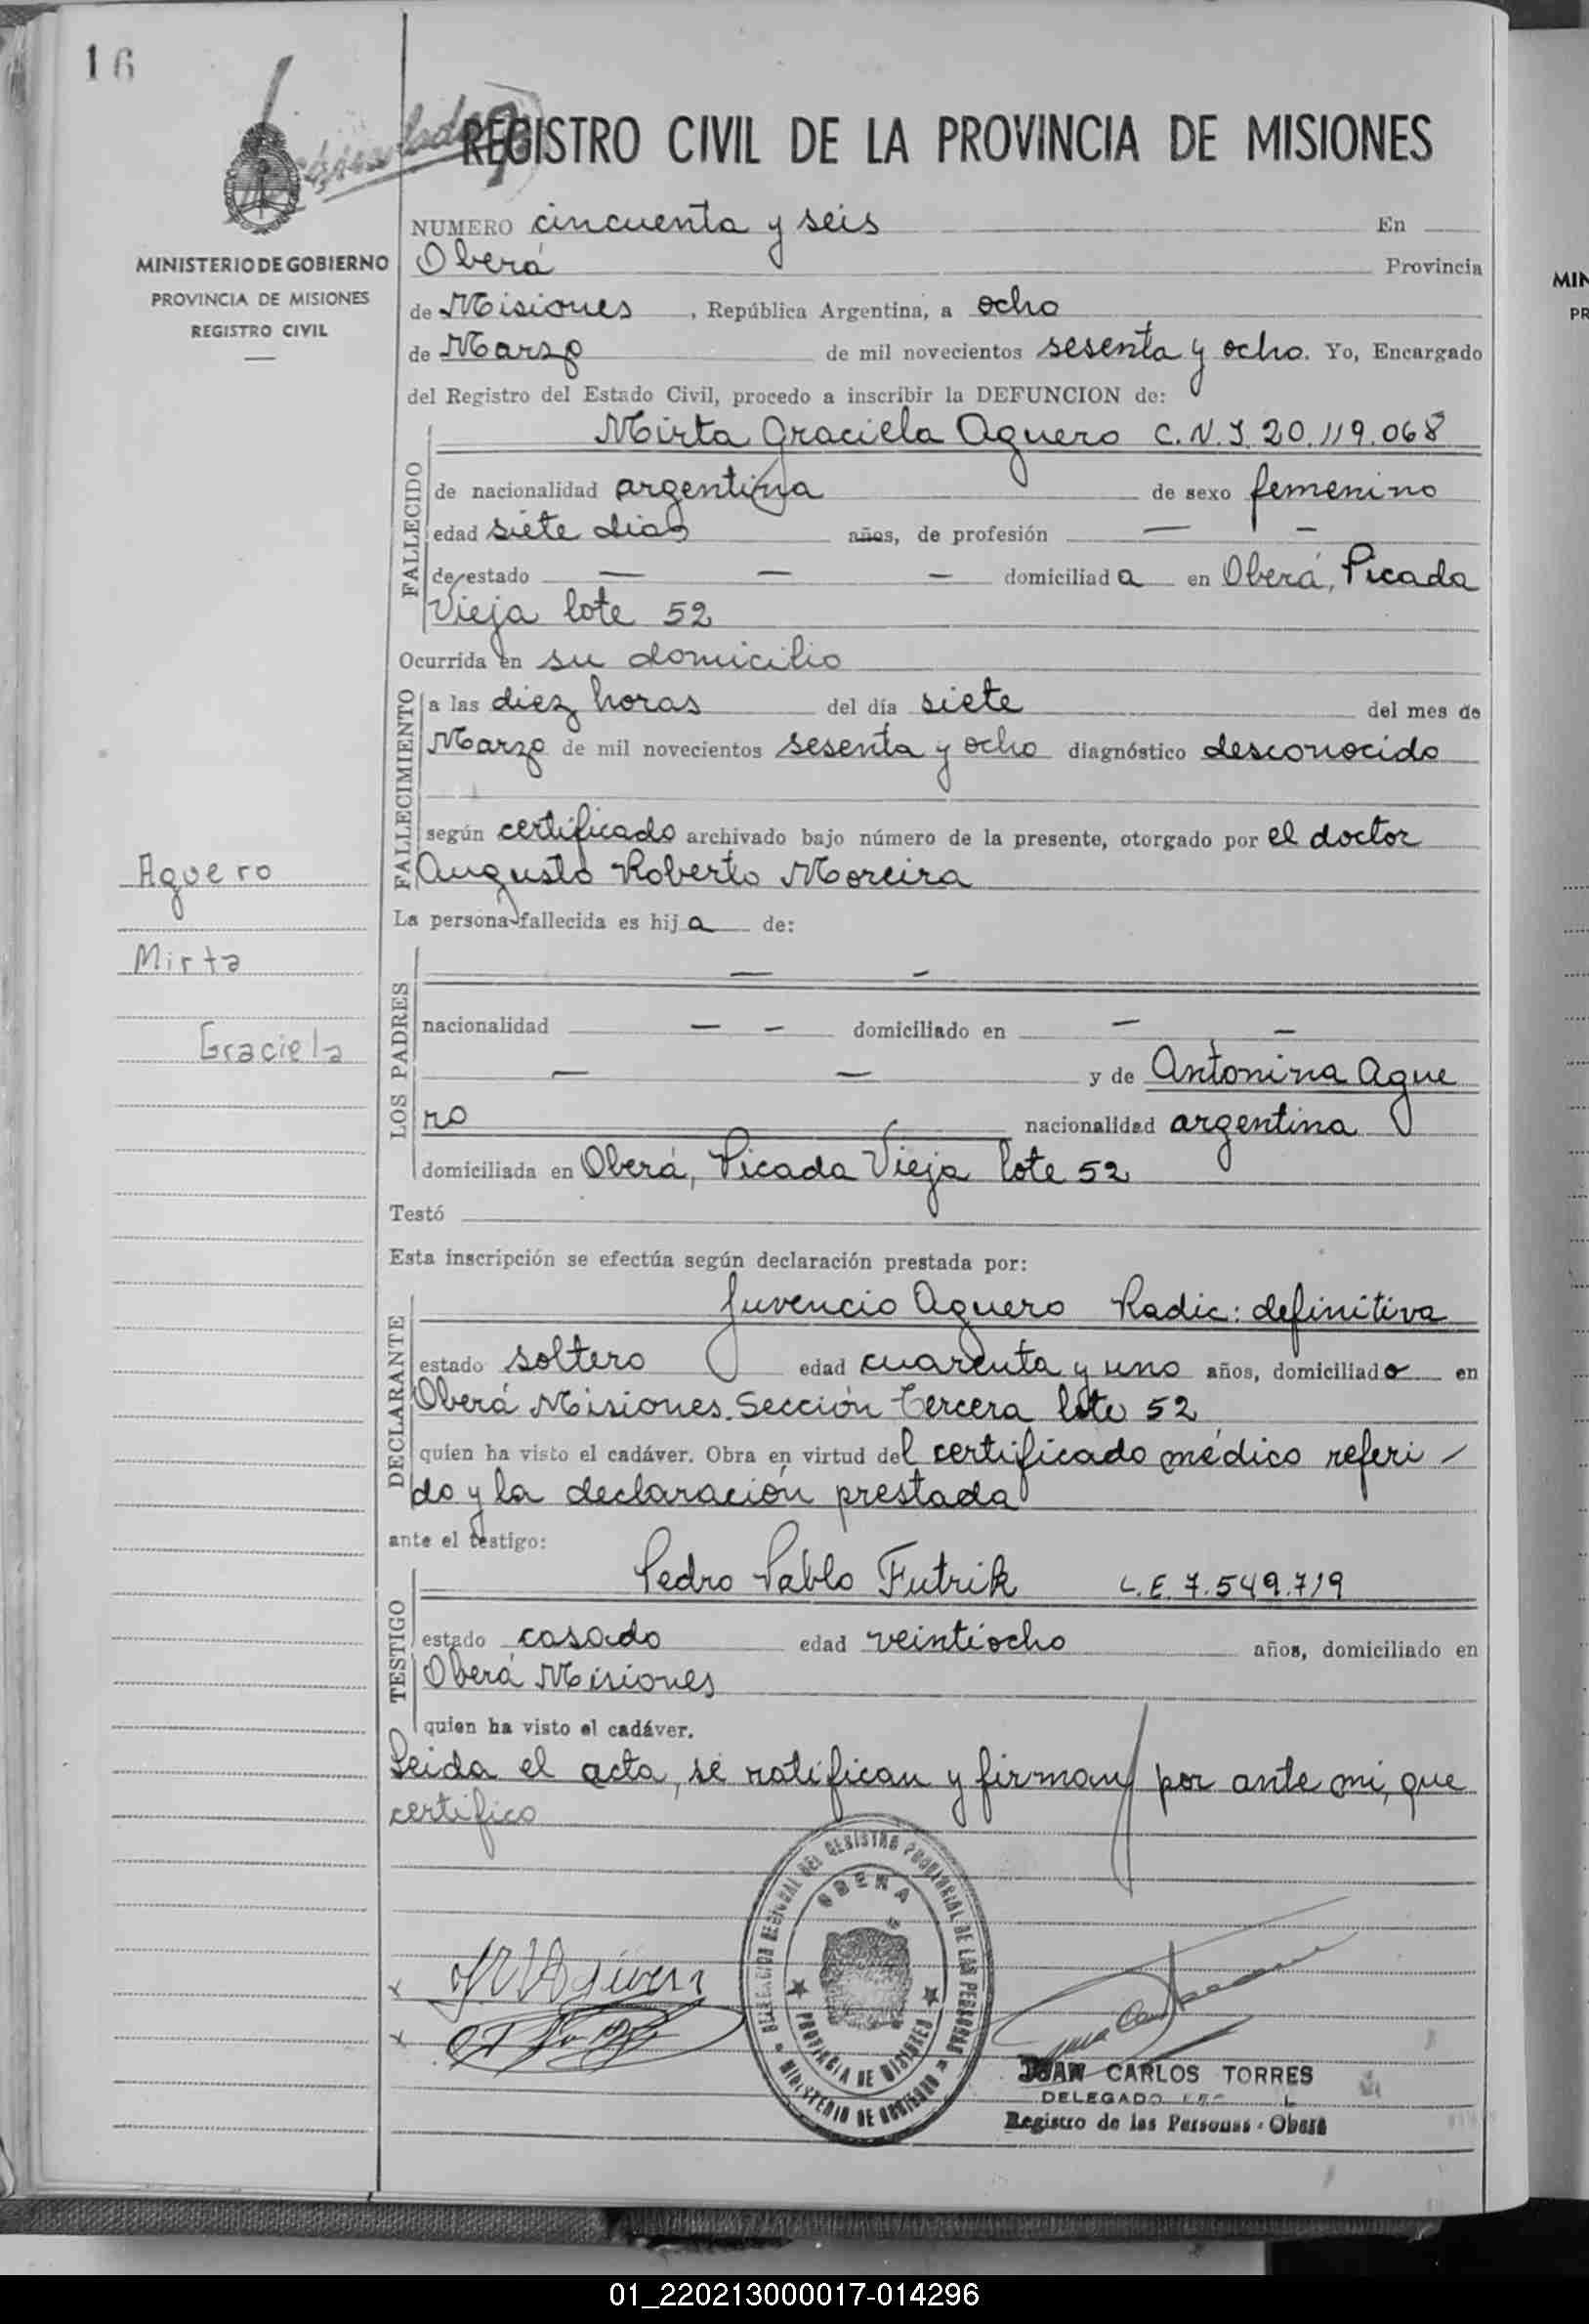 16
REGISTRO CIVIL DE LA PROVINCIA DE MISIONES
MINISTERIO DE GOBIERNO
PROVINCIA DE MISIONES
REGISTRO CIVIL
NUMERO cincuenta y seis En
Oberá Provincia
de Misiones, República Argentina, a ocho
de Marzo de mil novecientos sesenta y ocho. Yo, Encargado
del Registro del Estado Civil, procedo a inscribir la DEFUNCION de:
FALLECIDO
Mirta Graciela Aguero C.N.I 20.119.068
de nacionalidad argentina de sexo femenino
edad siete dias años, de profesión — —
de estado — — — domiciliad a en Oberá, Picada
Vieja lote 52
Ocurrida en su domicilio
FALLECIMIENTO
a las diez horas del día siete del mes de
Marzo de mil novecientos sesenta y ocho diagnóstico desconocido
según certificado archivado bajo número de la presente, otorgado por el doctor
Augusto Roberto Moreira
Aguero
Mirta
Graciela
La persona fallecida es hij a de:
LOS PADRES
— —
nacionalidad — — domiciliado en — —
— — y de Antonina Ague
ro nacionalidad argentina
domiciliada en Oberá, Picada Vieja lote 52
Testó
Esta inscripción se efectúa según declaración prestada por:
DECLARANTE
Juvencio Aguero Radic: definitiva
estado soltero edad cuarenta y uno años, domiciliado en
Oberá Misiones. Sección Tercera lote 52
quien ha visto el cadáver. Obra en virtud del certificado médico referi
do y la declaración prestada
ante el testigo:
TESTIGO
Pedro Pablo Futrik L.E. 7.549.719
estado casado edad veintiocho años, domiciliado en
Oberá Misiones
quien ha visto el cadáver.
Leida el acta, se ratifican y firman por ante mi, que
certifico
DELEGACION REGIONAL DEL REGISTRO PROVINCIAL DE LAS PERSONAS
OBERA
PROVINCIA DE MISIONES
MINISTERIO DE GOBIERNO
JUAN CARLOS TORRES
DELEGADO
Registro de las Personas - Oberá
MIN
PR
01_220213000017-014296